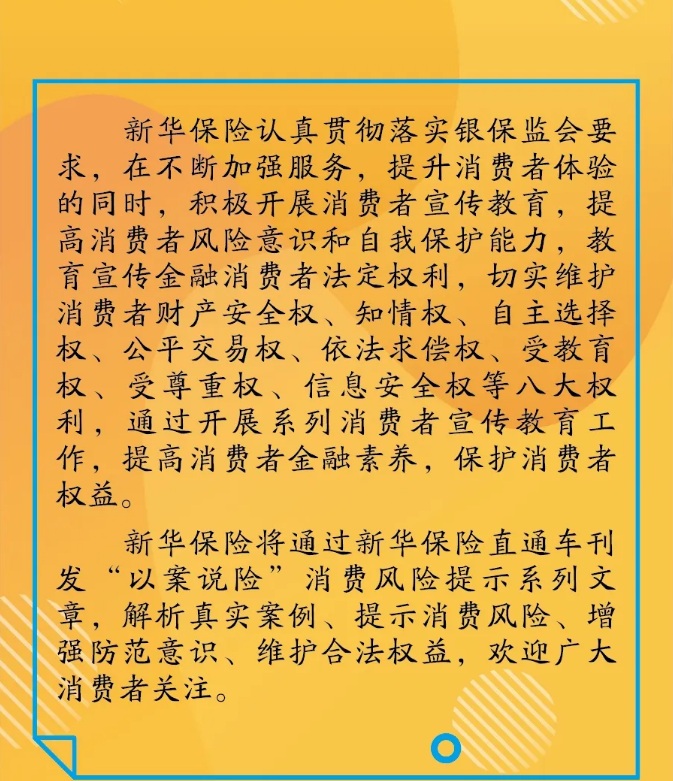 新华保险认真贯彻落实银保监会要
求，在不断加强服务，提升消费者体验
的同时，积极开展消费者宣传教育，提
高消费者风险意识和自我保护能力，教
育宣传金融消费者法定权利，切实维护
消费者财产安全权、知情权、自主选择
权、公平交易权、依法求偿权、受教育
权、受尊重权、信息安全权等八大权
利，通过开展系列消费者宣传教育工
作，提高消费者金融素养，保护消费者
权益。
新华保险将通过新华保险直通车刊
发“以案说险”消费风险提示系列文
章，解析真实案例、提示消费风险、增
强防范意识、维护合法权益，欢迎广大
消费者关注。